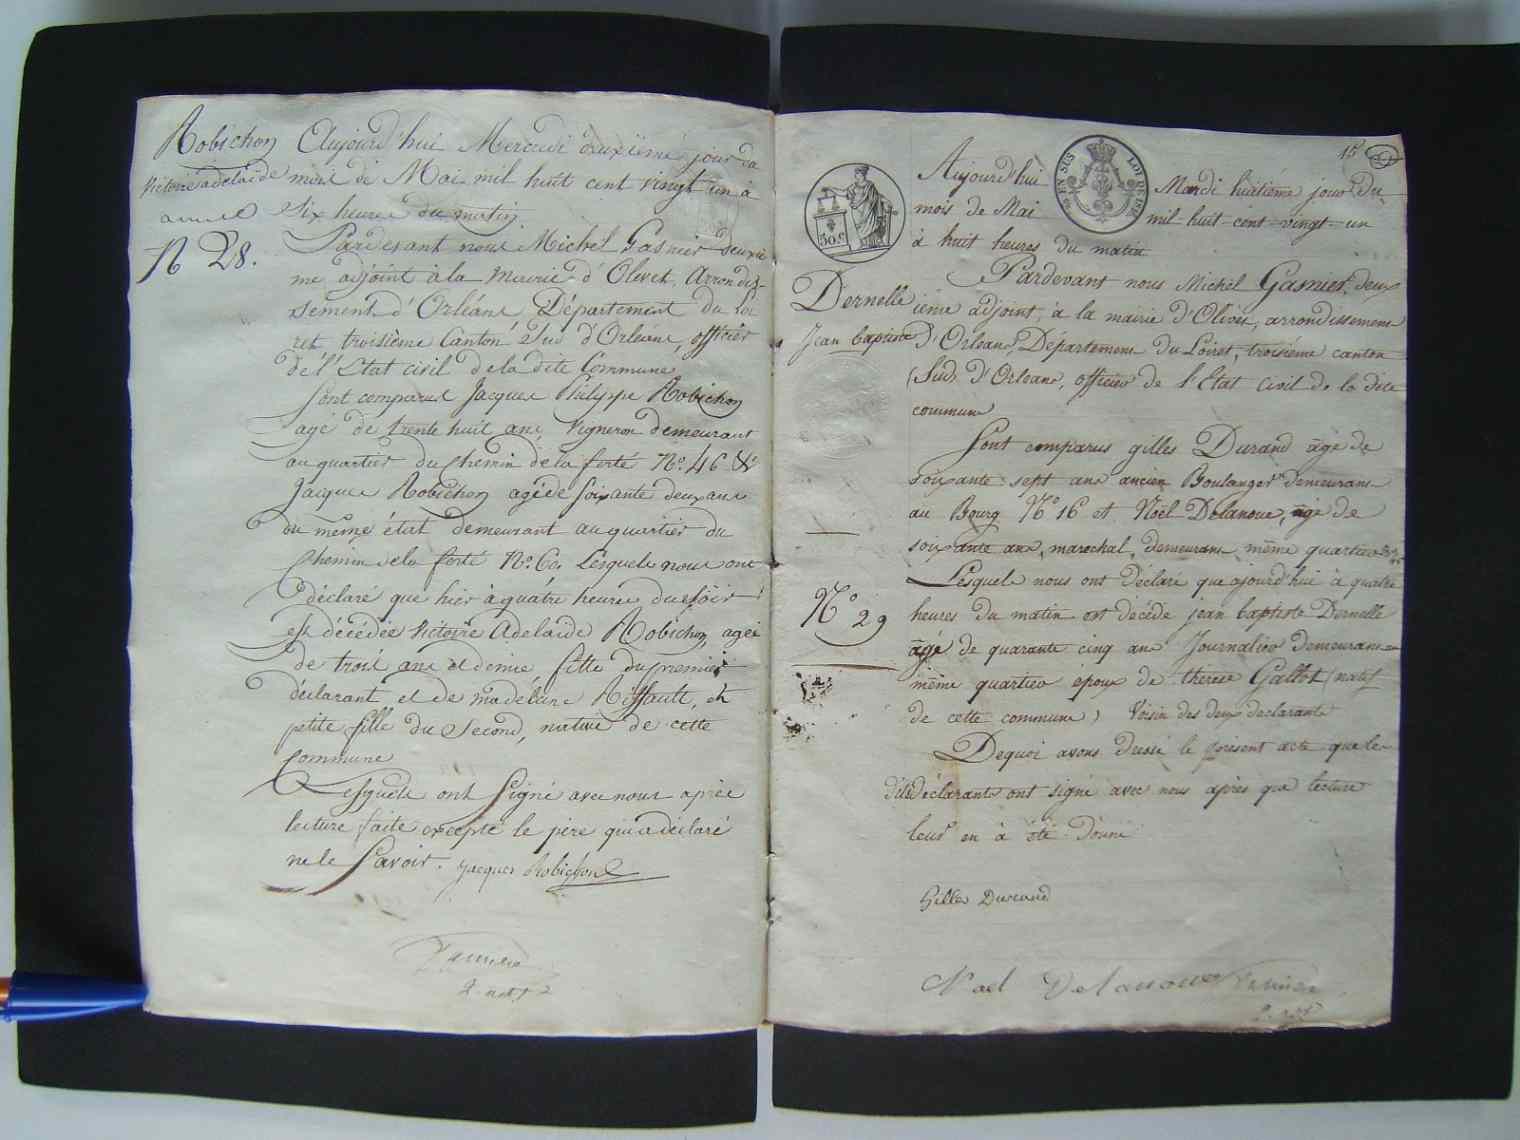 Robichon
Victoire adelaide
N 28.
Aujourd'hui Mercredi deuxième jour du
mois de Mai mil huit cent vingt un à
Six heures du matin
Pardevant nous Michel Gasnier deuxie
me adjoint à la mairie d'Olivet, Arrondis-
sement d'Orléans Département du Loi
ret troisième Canton Sud d'Orléans, officier
de l'Etat civil de la dite Commune
Sont comparus Jacques Philippe Robichon
agé de trente huit ans, Vigneron demeurant
au quartier du Chemin de la ferté No. 46 &
Jacques Robichon agé de soixante deux ans
du même état demeurant au quartier du
Chemin de la ferté No. 60. Lesquels nous ont
déclaré que hier à quatre heures du soir
est décédée Victoire Adelaide Robichon agée
de trois ans et demie fille du premier
déclarant et de madeleine Riffault, et
petite fille du Second, native de cette
Commune
Lesquels ont Signé avec nous après
lecture faite excepté le père qui a déclaré
ne le Savoir. Jacques Robichon
15
EN SUS
LOI DE 1816
50 c
Aujourd'hui Mardi huitième jour Du
mois de Mai mil huit cent vingt un
à huit heures du matin
Pardevant nous Michel Gasnier, deux
ième adjoint, à la mairie d'Olivet, arrondissement
d'Orléans, Département du Loiret, troisième canton
(Sud) d'Orléans, officier de l'Etat Civil de la dite
commune
Dernelle
Jean baptiste
Sont comparus gilles Durand âgé de
soixante sept ans ancien Boulanger demeurant
au Bourg No 16 et Noël Delanoue, âgé de
soixante ans, marechal, demeurant même quartier
Lesquels nous ont déclaré que ajourd'hui à quatre
heures du matin est décédé jean baptiste Dernelle
âgé de quarante cinq ans Journalier demeurant
même quartier époux de thérèse Gallot (natif
de cette commune) Voisin des deux declarants
No 29
Dequoi avons dressé le présent acte que les
dits déclarants ont signé avec nous après que lecture
leur en à été donné
Gilles Durand
Noel Delanoue